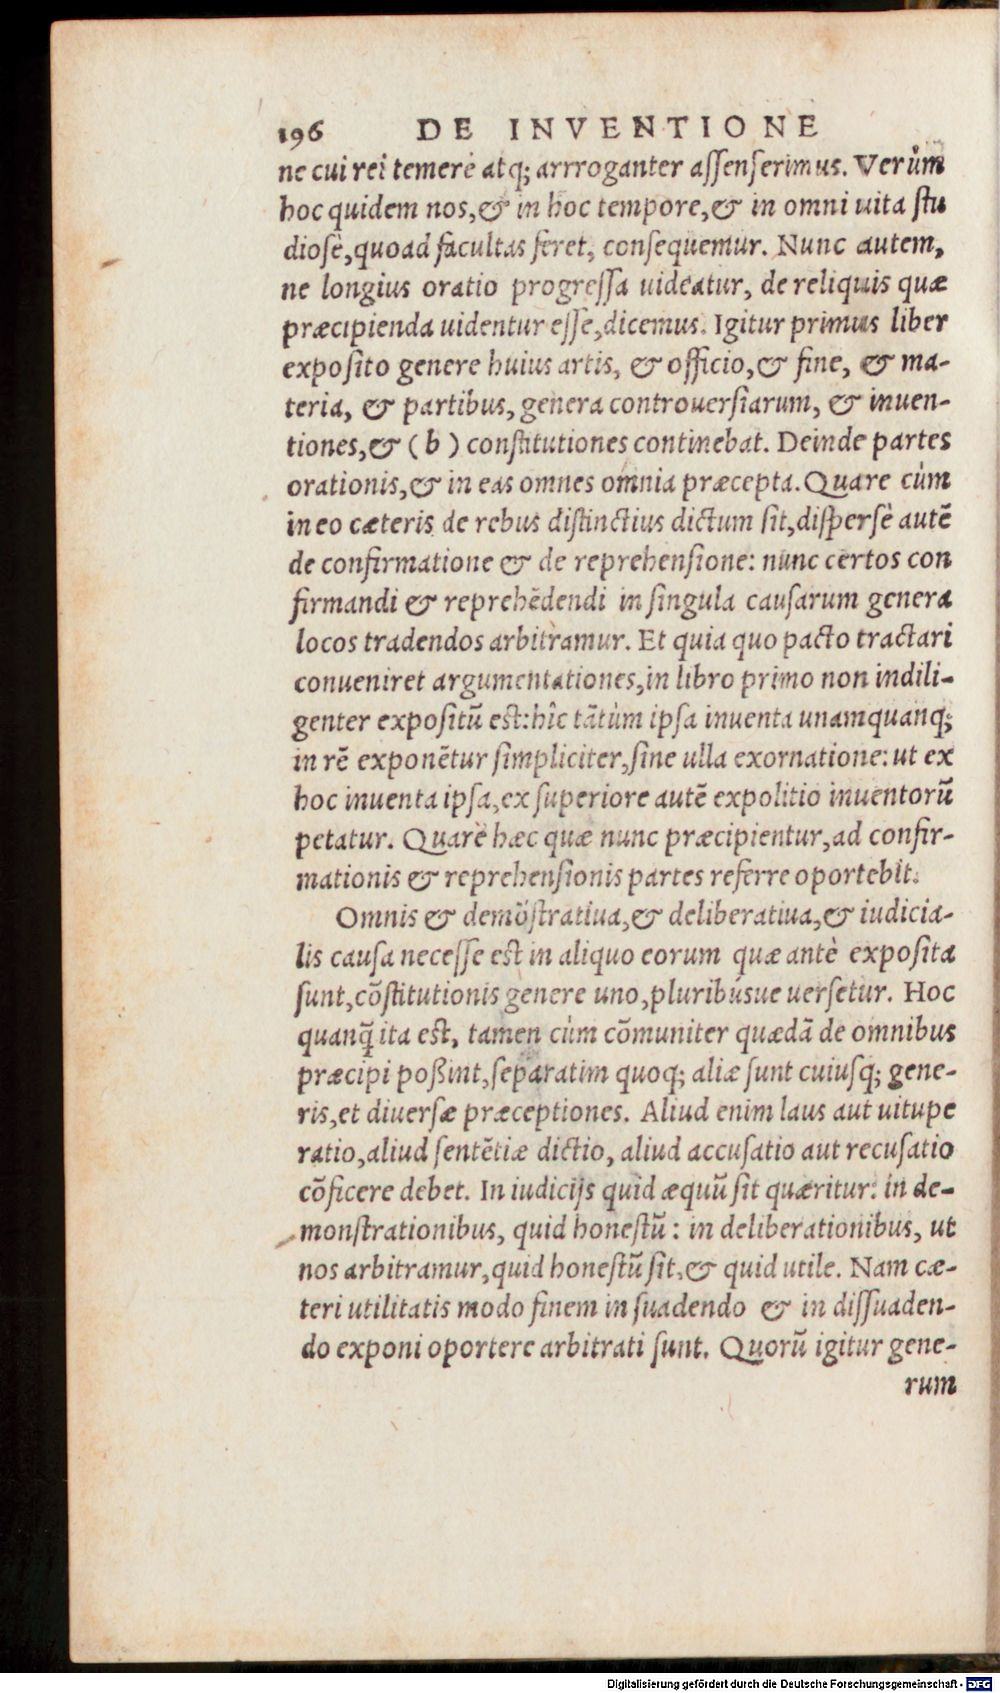 196 DE INVENTIONE
ne cui rei temerè atq; arrroganter assenserimus. Verùm
hoc quidem nos, & in hoc tempore, & in omni uita stu
diosè, quoad facultas feret, consequemur. Nunc autem,
ne longius oratio progressa uideatur, de reliquis quæ
præcipienda uidentur esse, dicemus. Igitur primus liber
exposito genere huius artis, & officio, & fine, & ma-
teria, & partibus, genera controuersiarum, & inuen-
tiones, & ( b ) constitutiones continebat. Deinde partes
orationis, & in eas omnes omnia præcepta. Quare cùm
in eo cæteris de rebus distinctius dictum sit, dispersè autẽ
de confirmatione & de reprehensione: nunc certos con
firmandi & reprehẽdendi in singula causarum genera
locos tradendos arbitramur. Et quia quo pacto tractari
conueniret argumentationes, in libro primo non indili-
genter expositũ est: hîc tãtùm ipsa inuenta unamquanq;
in rẽ exponẽtur simpliciter, sine ulla exornatione: ut ex
hoc inuenta ipsa, ex superiore autẽ expolitio inuentorũ
petatur. Quarè hæc quæ nunc præcipientur, ad confir-
mationis & reprehensionis partes referre oportebit.
Omnis & demõstratiua, & deliberatiua, & iudicia-
lis causa necesse est in aliquo eorum quæ antè exposita
sunt, cõstitutionis genere uno, pluribúsue uersetur. Hoc
quanq̃ ita est, tamen cùm cõmuniter quædã de omnibus
præcipi poßint, separatim quoq; aliæ sunt cuiusq; gene-
ris, et diuersæ præceptiones. Aliud enim laus aut uitupe
ratio, aliud sentẽtiæ dictio, aliud accusatio aut recusatio
cõficere debet. In iudicijs quid æquũ sit quæritur: in de-
monstrationibus, quid honestũ: in deliberationibus, ut
nos arbitramur, quid honestũ sit, & quid utile. Nam cæ-
teri utilitatis modo finem in suadendo & in dissuaden-
do exponi oportere arbitrati sunt. Quorũ igitur gene-
rum
Digitalisierung gefördert durch die Deutsche Forschungsgemeinschaft - DFG